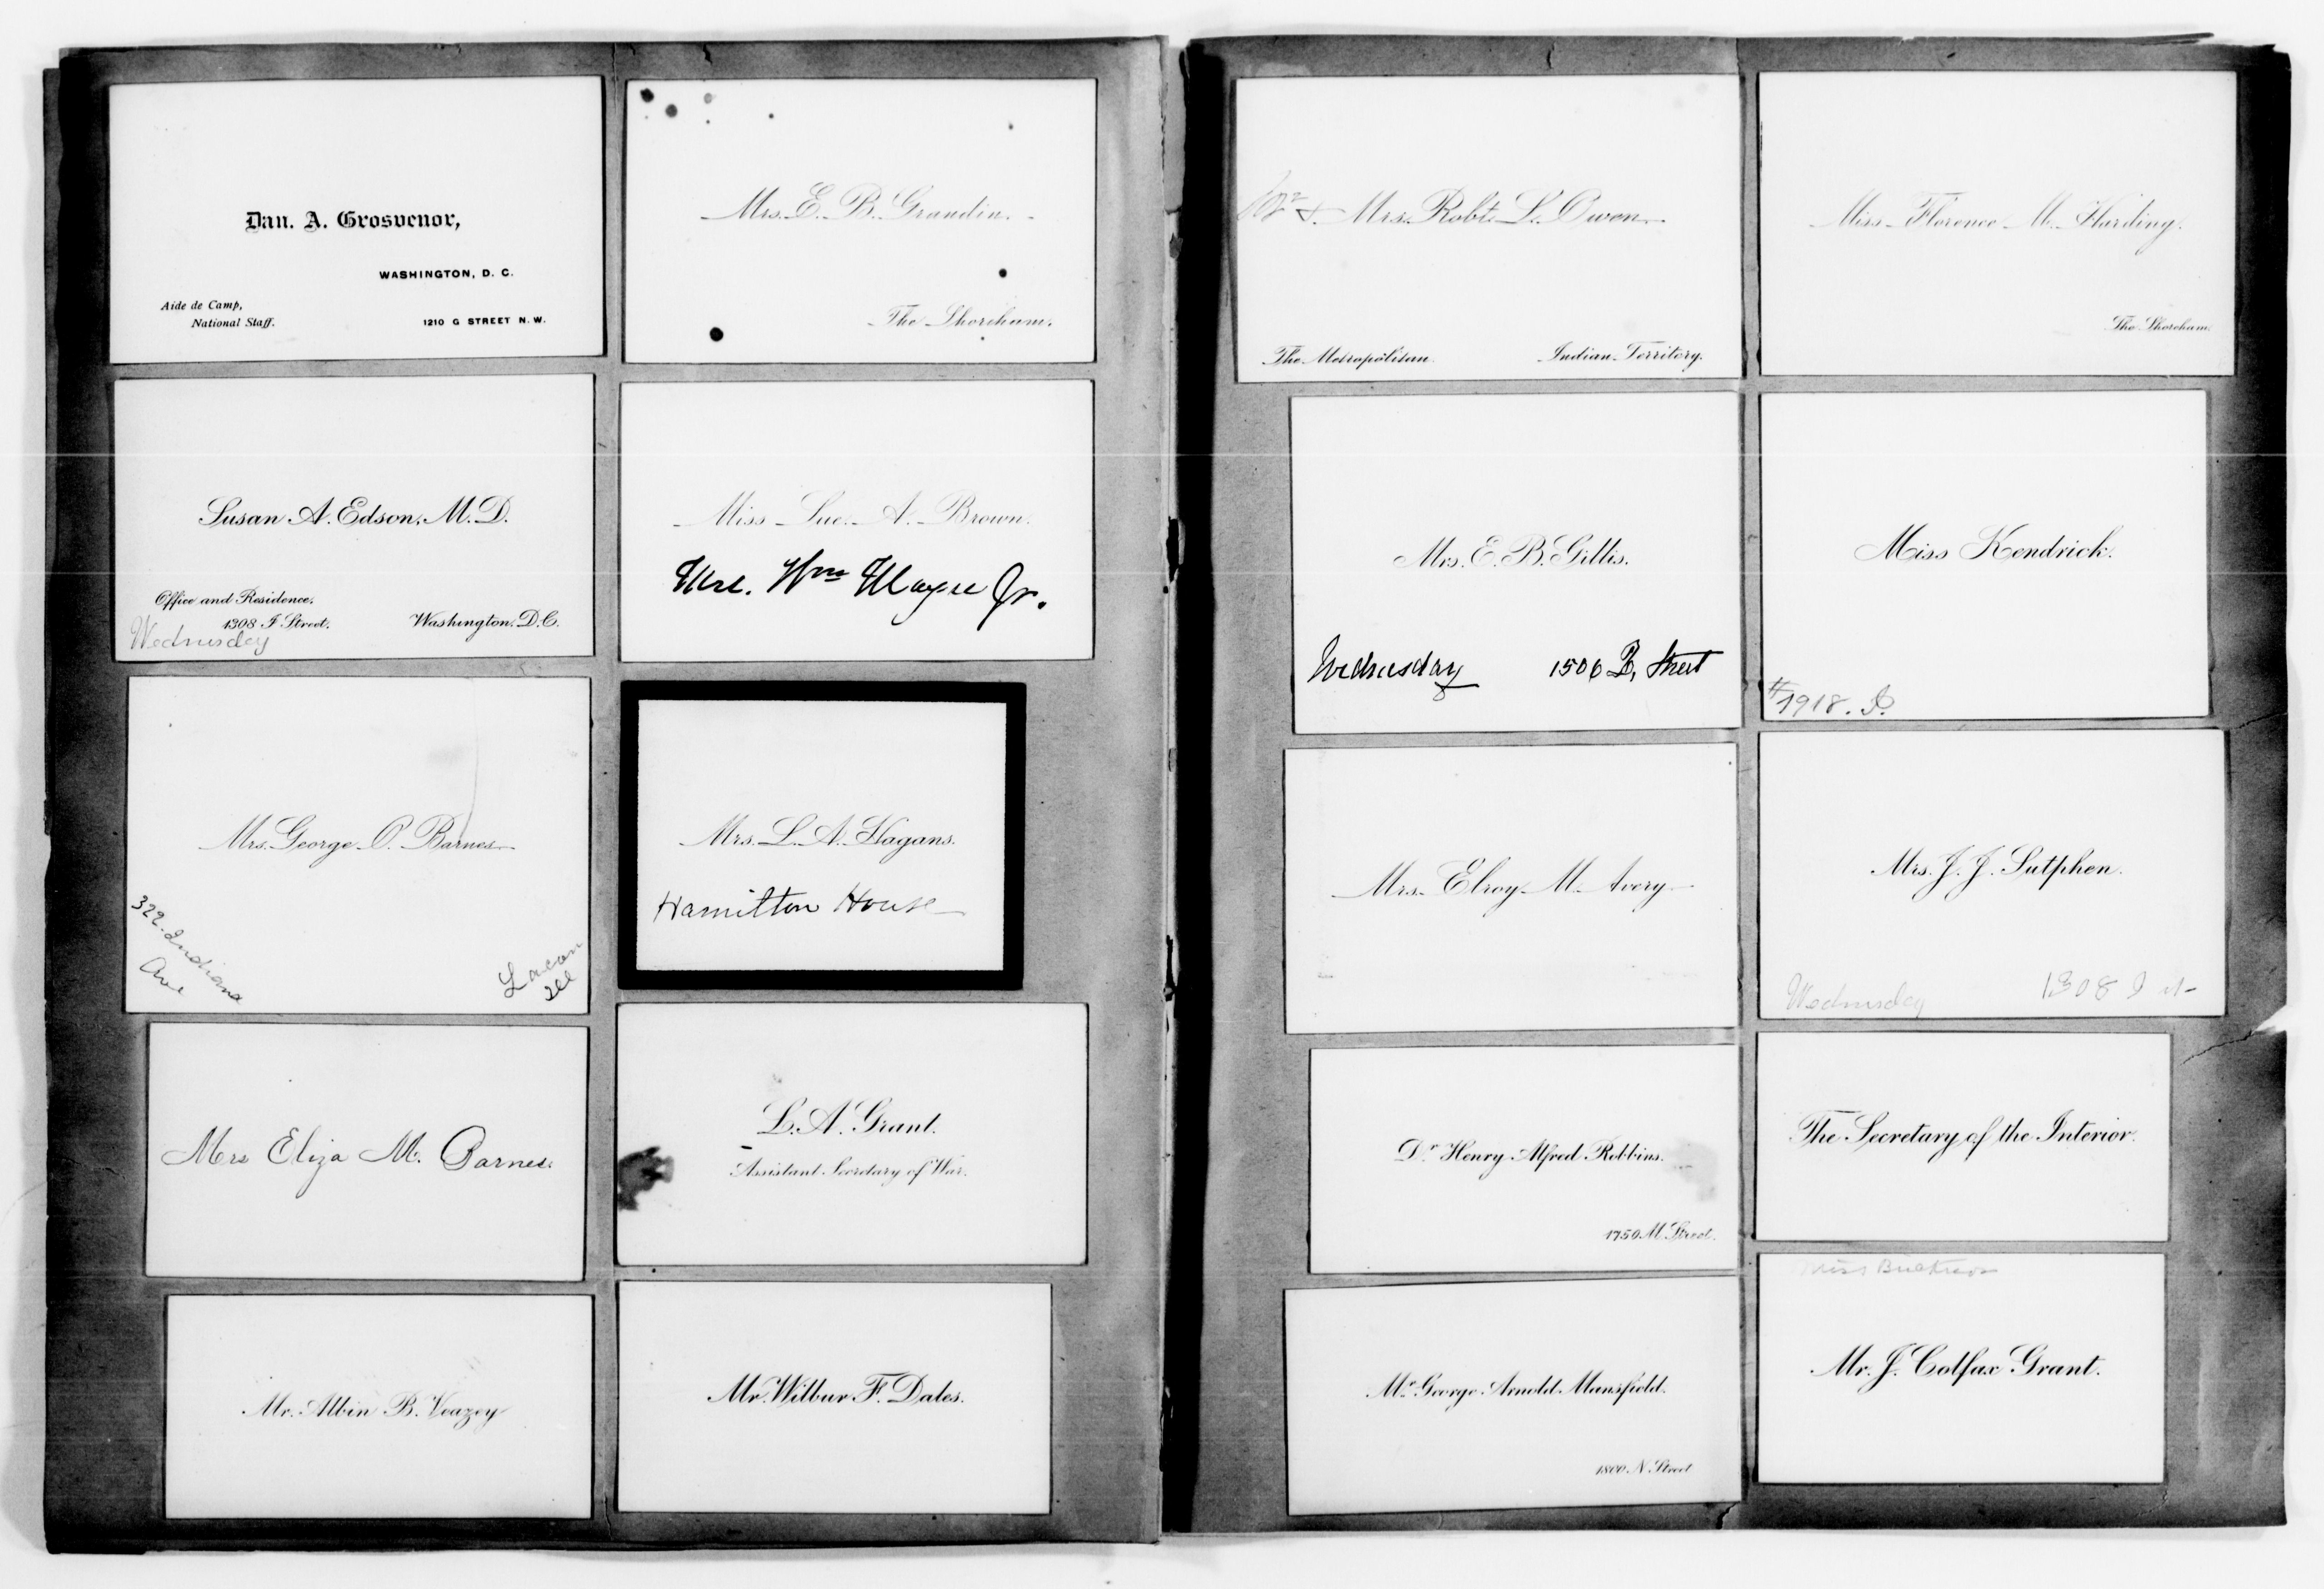 Dan. A. Grosvenor,
WASHINGTON, D. C.
Aide de Camp,
National Staff.
1210 G STREET N. W.
Mrs. E. B. Grandin.
The Shoreham.
Susan A. Edson, M. D.
Office and Residence,
1308 I Street.
Washington, D. C.
Wednesday
Miss Sue. A. Brown.
Mrs. Wm Jr.
Mrs. George O. Barnes
322 Indiana
Ave
Lacon
Ill
Mrs. L. A. Hagans.
Hamilton House
Mrs Eliza M. Barnes.
L. A. Grant.
Assistant Secretary of War.
Mr. Albin B. Veazey
Mr. Wilbur F. Dales.
& Mrs. Robt. L. Owen
The Metropolitan.
Indian Territory.
Miss Florence M. Harding.
The Shoreham.
Mrs. E. B. Gillis.
Wednesday 1506 Street
Miss Kendrick.
#1918.
Mrs. Elroy M. Avery
Mrs. J. J. Sutphen.
Wednesday 1308 I st
Dr. Henry Alfred Robbins.
1750 M Street.
The Secretary of the Interior.
Mr. George Arnold Mansfield.
1800 N Street
Miss
Mr. J. Colfax Grant.